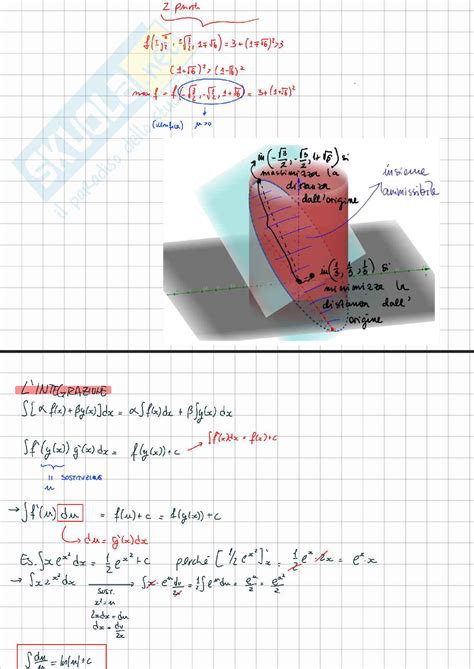 2 punti
f(±√3/2, ±√3/2, 1∓√6) = 3+(1∓√6)²>3
(1+√6)² > (1-√6)²
max f = f(-√3/2, -√3/2, 1+√6) = 3+(1+√6)²
μ>0
SKUOLA.net
il paradiso dello
in (-√3/2, -√3/2, 1+√6) si
massimizza la
distanza
dall'origine
insieme
ammissibile
in (1/3, 1/3, 1/3) si
minimizza la
distanza dall'
origine
L'INTEGRAZIONE
∫[αf(x)+βg(x)]dx = α∫f(x)dx + β∫g(x)dx
∫f'(g(x)) g'(x)dx = f(g(x))+c → ∫f'(x)dx = f(x)+c
II SOSTITUIRE
u
→ ∫f'(u) du = f(u)+c = f(g(x))+c
→ du = g'(x)dx
Es. ∫xe^x² dx = 1/2 e^x² + c perché [1/2 e^x²]'x = 1/2 e^x · 2x = e^x · x
→ ∫x e^x² dx → ∫x · e^u du/2x = 1/2 ∫e^u du = e^u/2 = e^x²/2
SOST.
x² = u
2xdx = du
dx = du/2x
∫ du/u = ln|u| + c